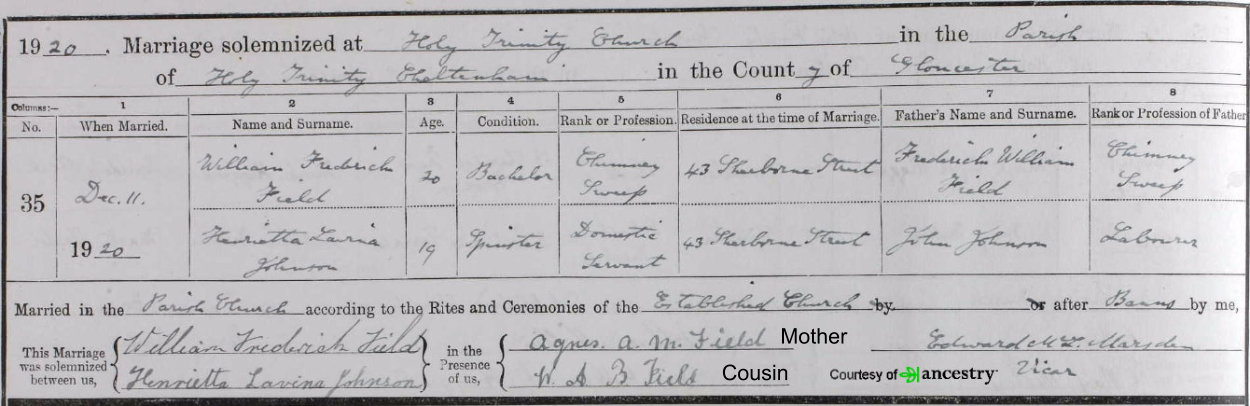 1920. Marriage solemnized at Holy Trinity Church in the Parish
of Holy Trinity Cheltenham in the County of Gloucester
Columns:— 1 2 3 4 5 6 7 8
No. When Married. Name and Surname. Age. Condition. Rank or Profession. Residence at the time of Marriage. Father's Name and Surname. Rank or Profession of Father
35
Dec. 11.
1920
William Frederick
Field
20
Bachelor
Chimney
Sweep
43 Sherborne Street
Frederick William
Field
Chimney
Sweep
Henrietta Lavina
Johnson
19
Spinster
Domestic
Servant
43 Sherborne Street
John Johnson
Labourer
Married in the Parish Church according to the Rites and Ceremonies of the Established Church by or after Banns by me,
This Marriage
was solemnized
between us,
William Frederick Field
Henrietta Lavina Johnson
in the
Presence
of us,
Agnes. A. M. Field Mother
W. A. B. Field Cousin
Edward Marsden
Vicar
Courtesy of ancestry